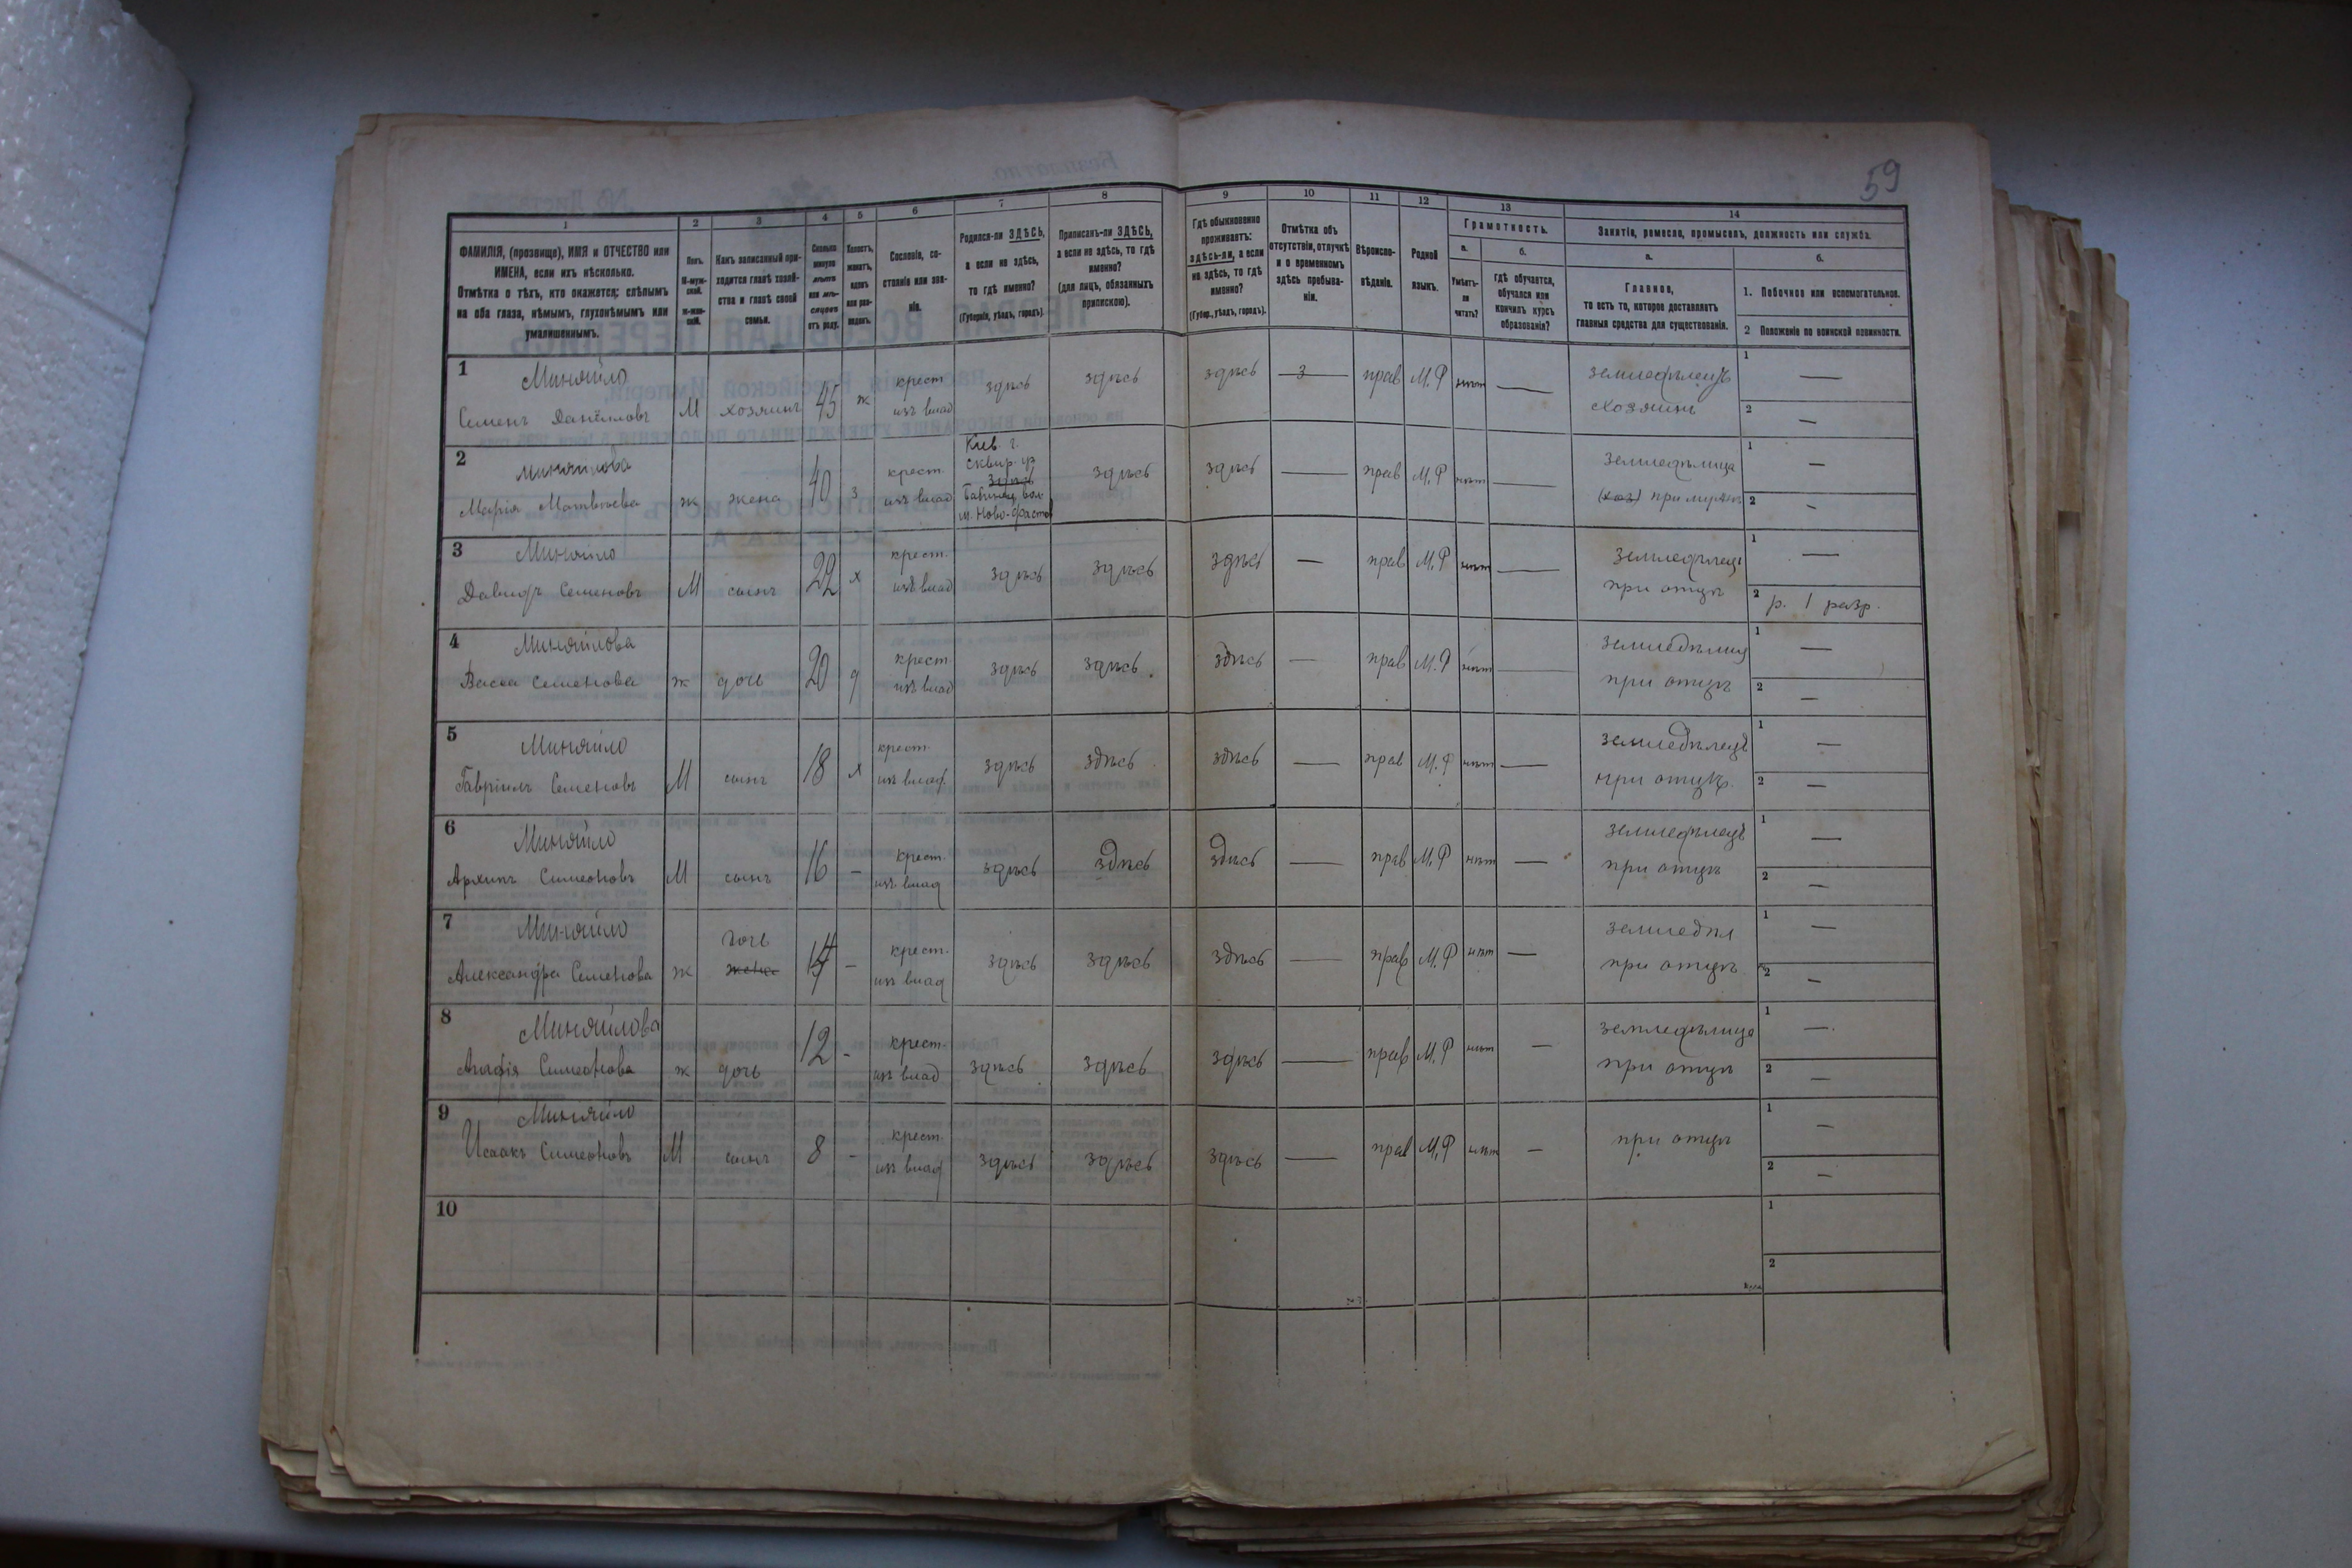 59
1 2 3 4 5 6 7 8 9 10 11 12 13 14
ФАМИЛІЯ, (прозвище), ИМЯ и ОТЧЕСТВО или
ИМЕНА, если ихъ нѣсколько.
Отмѣтка о тѣхъ, кто окажется: слѣпымъ
на оба глаза, нѣмымъ, глухонѣмымъ или
умалишеннымъ.
Полъ.
М-муж-
ской.
Ж-жен-
скій.
Какъ записанный при-
ходится главѣ хозяй-
ства и главѣ своей
семьи.
Сколько
минуло
лѣтъ
или мѣ-
сяцевъ
отъ роду.
Холостъ,
женатъ,
вдовъ
или раз-
веденъ.
Сословіе, со-
стояніе или зва-
ніе.
Родился-ли ЗДѢСЬ,
а если не здѣсь,
то гдѣ именно?
(Губернія, уѣздъ, городъ).
Приписанъ-ли ЗДѢСЬ,
а если не здѣсь, то гдѣ
именно?
(для лицъ, обязанныхъ
припискою).
Гдѣ обыкновенно
проживаетъ:
здѣсь-ли, а если
не здѣсь, то гдѣ
именно?
(Губер., уѣздъ, городъ).
Отмѣтка объ
отсутствіи, отлучкѣ
и о временномъ
здѣсь пребыва-
ніи.
Вѣроиспо-
вѣданіе.
Родной
языкъ.
Грамотность.
а.
Умѣетъ-
ли
читать?
б.
Гдѣ обучается,
обучался или
кончилъ курсъ
образованія?
Занятіе, ремесло, промыселъ, должность или служба.
а.
Главное,
то есть то, которое доставляетъ
главныя средства для существованія.
б.
1. Побочное или вспомогательное.
2 Положеніе по воинской повинности.
1 Миняйло крест здѣсь здѣсь здѣсь 3 прав М.Р нѣт землedѣлецъ 1 —
Семенъ Даніиловъ М хозяинъ 45 ж изъ влад хозяинъ 2 —
2 Миняйлова Киев. г.
сквир. уѣ
Марія Матвѣева ж жена 40 з крест. изъ влад здѣсь здѣсь — прав М.Р нѣт — земледѣлица 1 —
вол.
м. Ново-Фастов
при мужѣ 2 -
3 Миняйло крест. здѣсь здѣсь здѣсь — прав М.Р нѣт — земледѣлецъ 1 —
Давидъ Семеновъ М сынъ 22 х изъ влад при отцѣ 2 р. 1 разр.
4 Миняйлова крест здѣсь здѣсь здѣсь — прав М.Р нѣт — земледѣлица 1 —
Васса Семенова ж дочь 20 д изъ влад при отцѣ 2 —
5 Миняйло крест. здѣсь здѣсь здѣсь — прав М.Р нѣт — земледѣлецъ 1 —
Гавріилъ Семеновъ М сынъ 18 х изъ влад. при отцѣ 2 —
6 Миняйло крест. здѣсь здѣсь здѣсь — прав М.Р нѣт — земледѣлецъ 1 —
Архипъ Симеоновъ М сынъ 16 - изъ влад при отцѣ 2 —
7 Миняйло дочь крест. здѣсь здѣсь здѣсь — прав М.Р нѣт — земледѣл 1 —
Александра Семенова ж жена 14 - изъ влад при отцѣ 2 —
8 Миняйлова крест. здѣсь здѣсь здѣсь — прав М.Р нѣт — земледѣлица 1 —
Агафія Симеонова ж дочь 12 - изъ влад при отцѣ 2 —
9 Миняйло крест. здѣсь здѣсь здѣсь — прав М.Р нѣт — при отцѣ 1 —
Исаакъ Симеоновъ М сынъ 8 - изъ влад 2 —
10 1
2